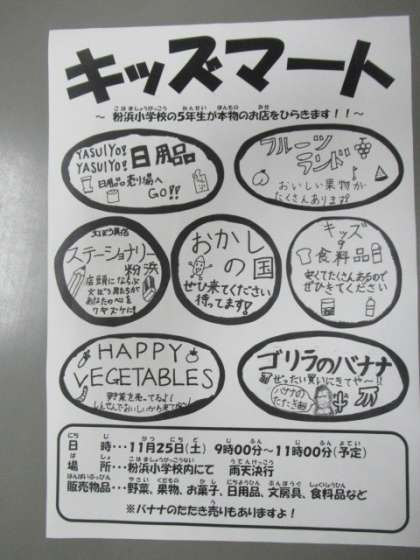 キッズマート
～ 粉浜小学校の5年生が本物のお店をひらきます！！～
YASUIYO!
YASUIYO!
日用品
日用品売り場へ
GO!!
フルーツ
ランド
おいしい果物が
たくさんあります!
文ぼう具店
ステーショナリー
粉浜
店頭にならぶ
文ぼう具たちが
あなたの心を
おかし
の国
ぜひ来てください
待ってます!
キッズ
食料品
安くてたくさんあるので
ぜひきてください
HAPPY
VEGETABLES
野菜を売ってるよ!
ゴリラのバナナ
ぜったい買いにきてや～!!
バナナの
たたき売り
日時･･･11月25日(土) 9時00分～11時00分(予定)
場所･･･粉浜小学校内にて 雨天決行
販売物品･･･野菜、果物、お菓子、日用品、文房具、食料品など
※バナナのたたき売りもありますよ！